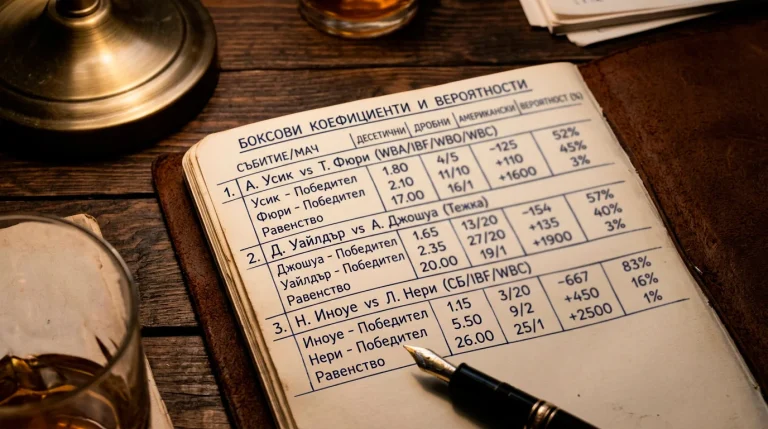 БОКСОВИ КОЕФИЦИЕНТИ И ВЕРОЯТНОСТИ
СЪБИТИЕ/МАЧ ДЕСЕТИЧНИ ДРОБНИ АМЕРИКАНСКИ ВЕРОЯТНОСТ (%)
1. А. Усик vs Т. Фюри (WBA/IBF/WBO/WBC)
Усик - Победител 1.80 4/5 -125 52%
Фюри - Победител 2.10 11/10 +110 45%
Равенство 17.00 16/1 +1600 3%
2. Д. Уайлдър vs А. Джошуа (Тежка)
Джошуа - Победител 1.65 13/20 -154 57%
Уайлдър - Победител 2.35 27/20 +135 40%
Равенство 20.00 19/1 +1900 3%
3. Н. Иноуе vs Л. Нери (СБ/IBF/WBC)
Иноуе - Победител 1.15 3/20 -667 83%
Нери - Победител 5.50 9/2 +450 16%
Равенство 26.00 25/1 +2500 1%